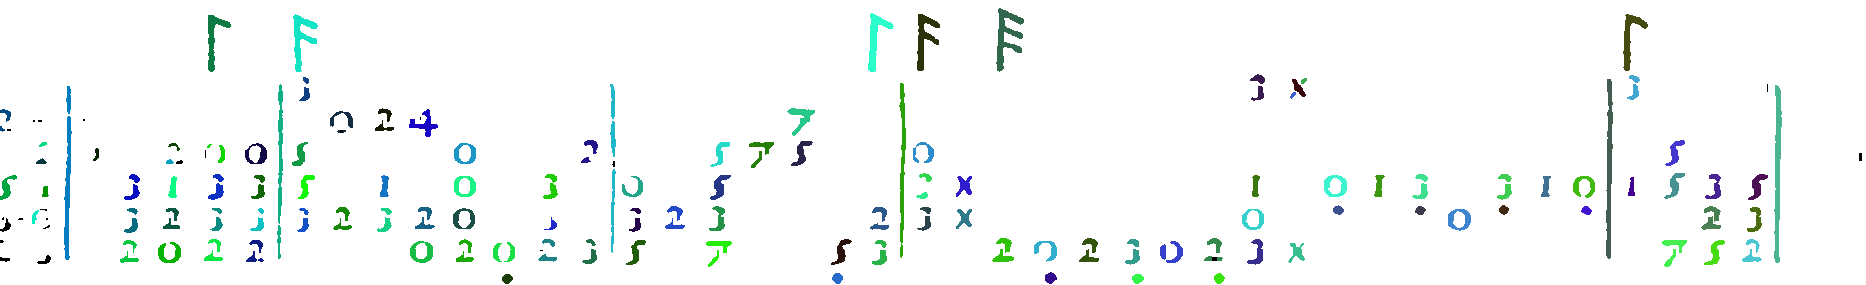 3 3 x 3
0 2 4 7
2 0 0 5 0 2 5 7 5 0 5
5 1 3 1 3 3 5 1 0 3 0 5 3 x 1 0 1 3 3 1 0 1 5 3 5
3 2 3 3 3 2 3 2 0 3 2 3 2 3 x 0 0 2 3
2 0 2 2 0 2 0 2 3 5 7 5 3 2 0 2 3 0 2 3 x 7 5 2